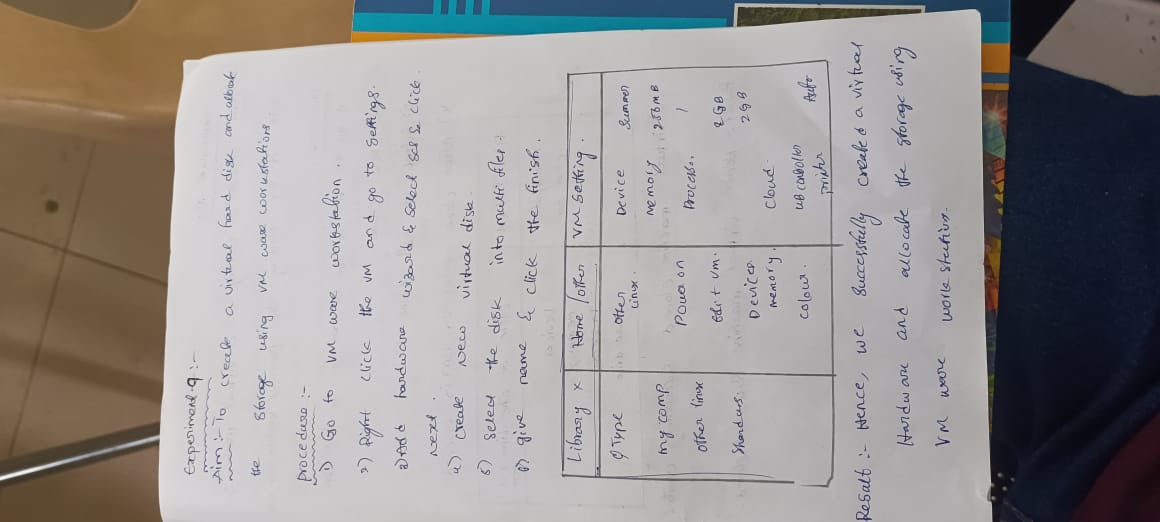 Experiment-9 :-
Aim :- To create a virtual hard disk and allocate
the storage using VM ware workstations
procedure :-
1) Go to VM ware workstation.
2) Right click the VM and go to settings.
3) Add hardware wizard & select scsi & click
Next.
4) create New virtual disk.
5) Select the disk into multi files.
6) give name & click the finish.
Library x Home / other VM setting.
Type other linux. Device Summary
my comp Power on Memory 256 MB
other linux Edit vm. Process. 1
Shardwrs. Device. 8 GB
memory. 2 GB
colour. Cloud.
controller
printer Auto
Result :- Hence, we successfully created a virtual
Hardware and allocate the storage using
VM ware work station.